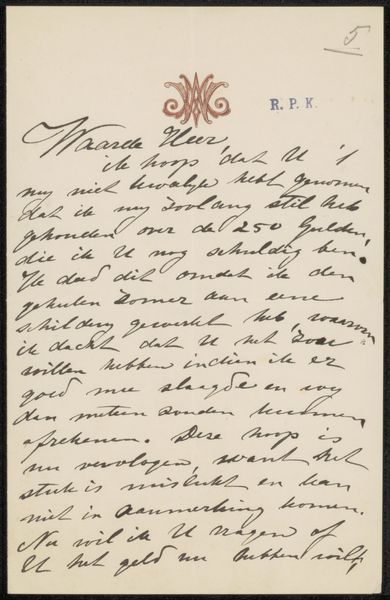 5
R. P. K.
Waarde Heer
ik hoop dat U 't
my niet kwalijk hebt genomen
dat ik my zoolang stil heb
gehouden over de 250 Gulden,
die ik U nog schuldig ben.
Ik deed dit omdat ik den
geheelen Zomer aan eene
schildery gewerkt heb, waarvan
ik dacht dat U het zou
willen hebben indien ik er
goed mee slaagde en wy
dan meteen zouden kunnen
afrekenen. Deze hoop is
nu vervlogen, want het
stuk is mislukt en kan
niet in aanmerking komen.
Nu wil ik U vragen of
U het geld nu hebben wilt,